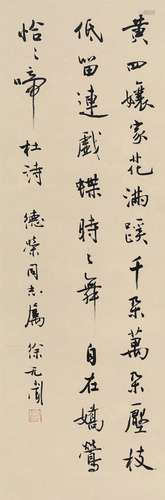 黄四孃家花滿蹊千朵萬朵壓枝
低留連戲蝶時〻舞自在嬌鶯
恰〻啼 杜詩 德榮同志屬 徐元聞